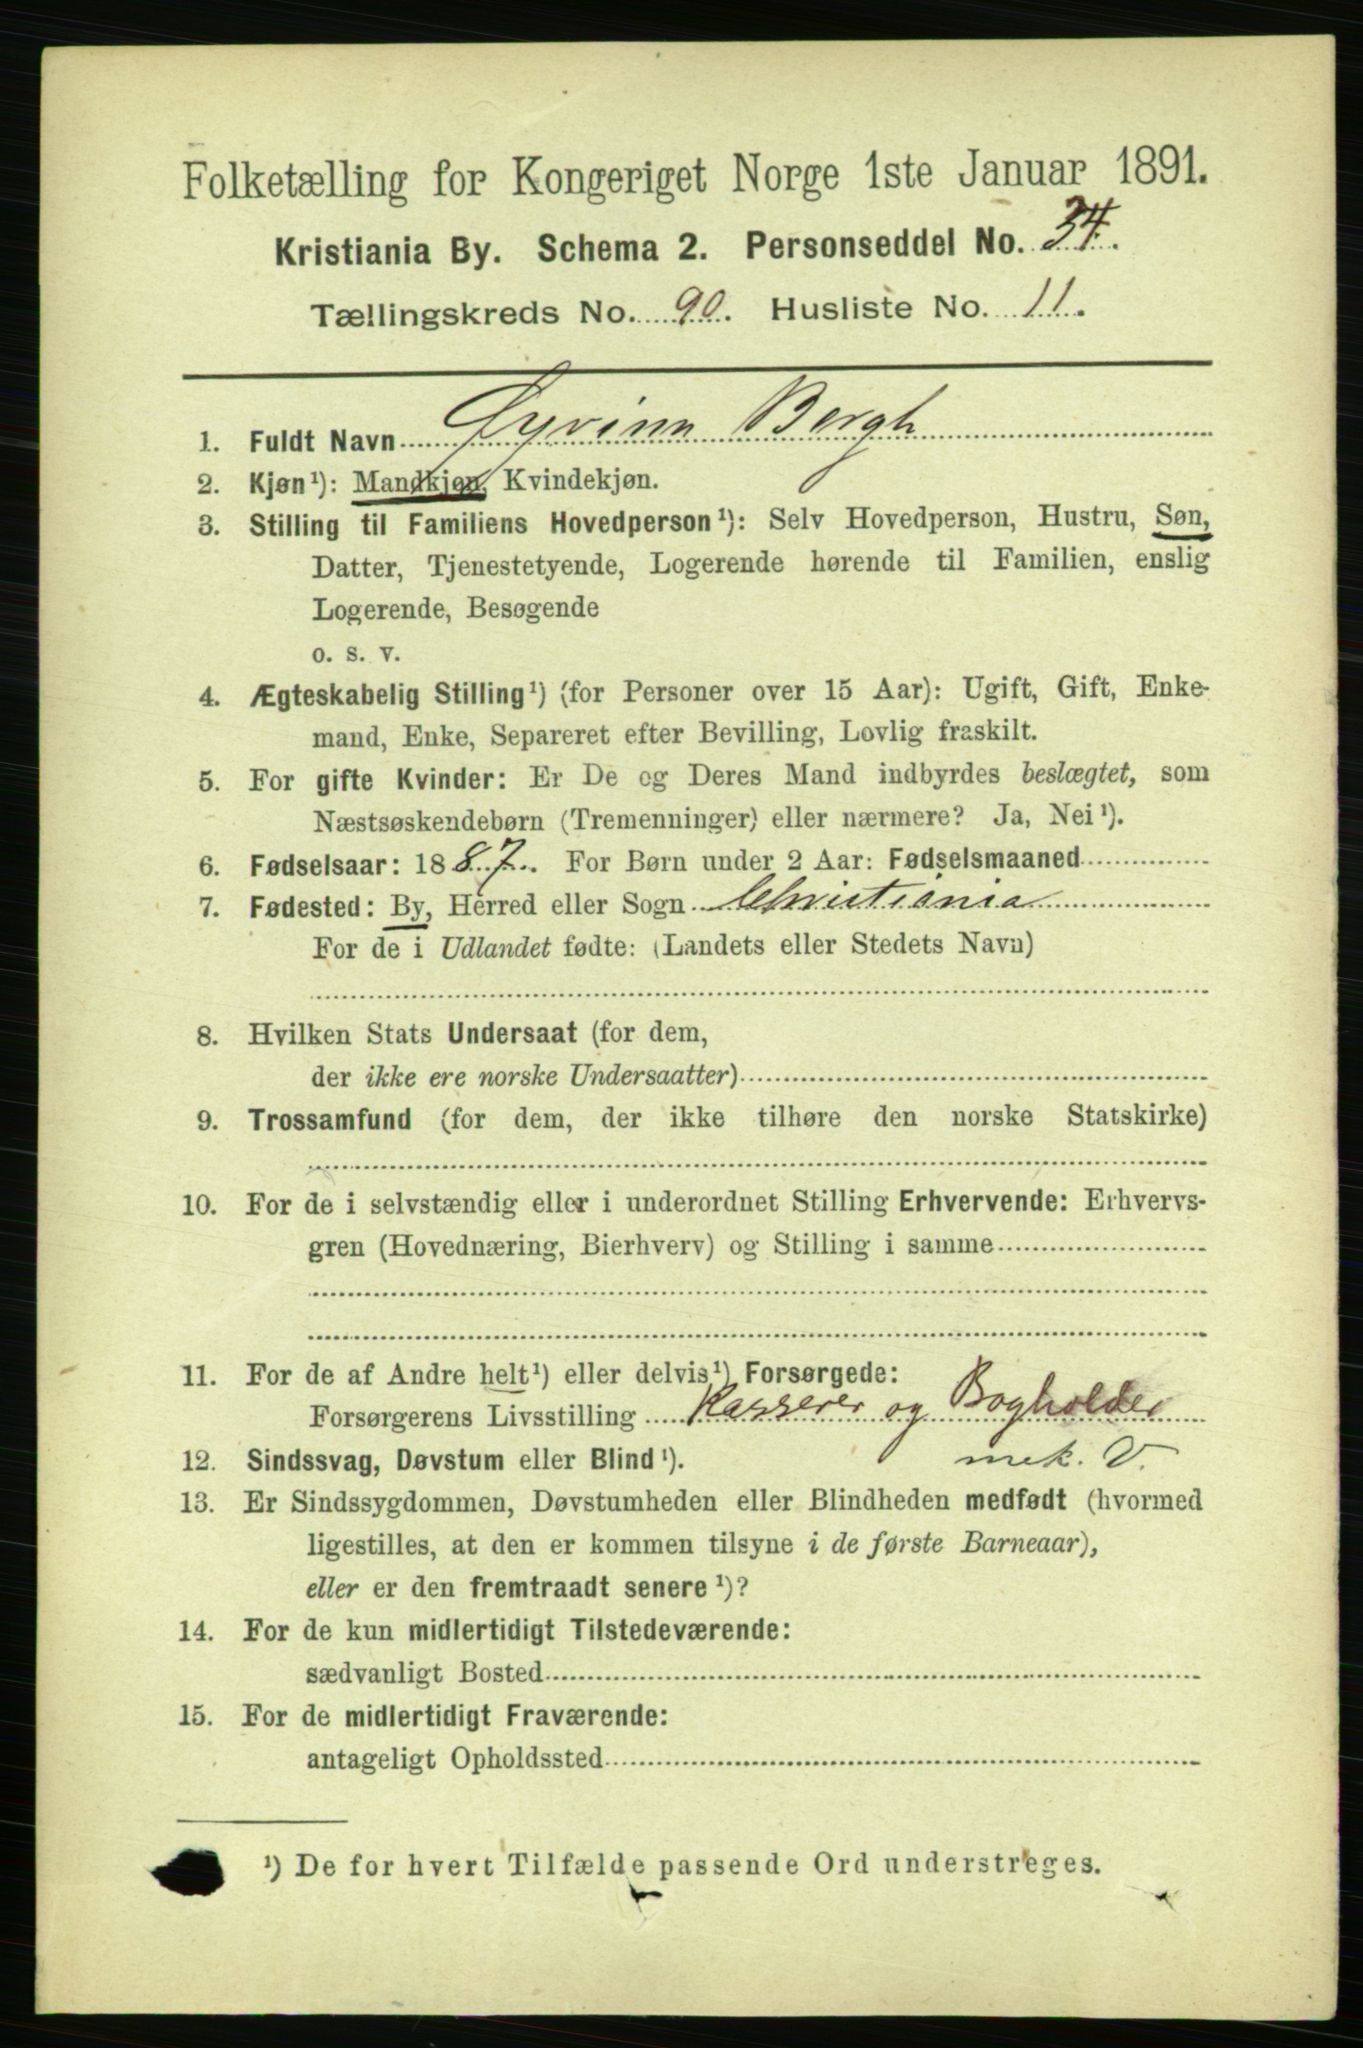 Folketælling for Kongeriget Norge 1ste Januar 1891.
Kristiania By. Schema 2. Personseddel No. 34.
Tællingskreds No. 90. Husliste No. 11.
1. Fuldt Navn Øyvinn Bergh
2. Kjøn¹): Mandkjøn, Kvindekjøn.
3. Stilling til Familiens Hovedperson¹): Selv Hovedperson, Hustru, Søn,
Datter, Tjenestetyende, Logerende hørende til Familien, enslig
Logerende, Besøgende
o. s. v.
4. Ægteskabelig Stilling¹) (for Personer over 15 Aar): Ugift, Gift, Enke-
mand, Enke, Separeret efter Bevilling, Lovlig fraskilt.
5. For gifte Kvinder: Er De og Deres Mand indbyrdes beslægtet, som
Næstsøskendebørn (Tremenninger) eller nærmere? Ja, Nei¹).
6. Fødselsaar: 1887. For Børn under 2 Aar: Fødselsmaaned
7. Fødested: By, Herred eller Sogn Christiania
For de i Udlandet fødte: (Landets eller Stedets Navn)
8. Hvilken Stats Undersaat (for dem,
der ikke ere norske Undersaatter)
9. Trossamfund (for dem, der ikke tilhøre den norske Statskirke)
10. For de i selvstændig eller i underordnet Stilling Erhvervende: Erhvervs-
gren (Hovednæring, Bierhverv) og Stilling i samme
11. For de af Andre helt¹) eller delvis¹) Forsørgede:
Forsørgerens Livsstilling Kasserer og Bogholder
12. Sindssvag, Døvstum eller Blind¹). mek. V.
13. Er Sindssygdommen, Døvstumheden eller Blindheden medfødt (hvormed
ligestilles, at den er kommen tilsyne i de første Barneaar),
eller er den fremtraadt senere¹)?
14. For de kun midlertidigt Tilstedeværende:
sædvanligt Bosted
15. For de midlertidigt Fraværende:
antageligt Opholdssted
¹) De for hvert Tilfælde passende Ord understreges.